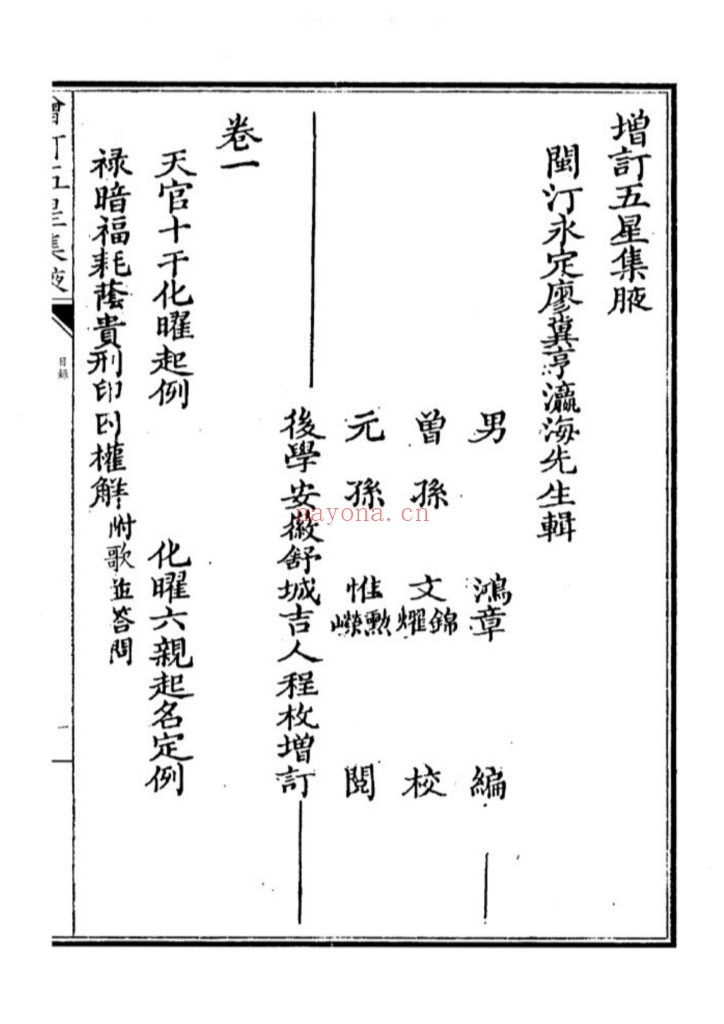 增訂五星集腋
閩汀永定廖冀亨瀛海先生輯
男 鴻章 編
曾孫 文錦耀 校
元孫 惟勲嶸 閱
後學安徽舒城吉人程枚增訂
卷一
天官十干化曜起例 化曜六親起名定例
禄暗福耗蔭貴刑印囚權觧 附歌並答問
增訂五星集腋 目錄 一
nayona.cn